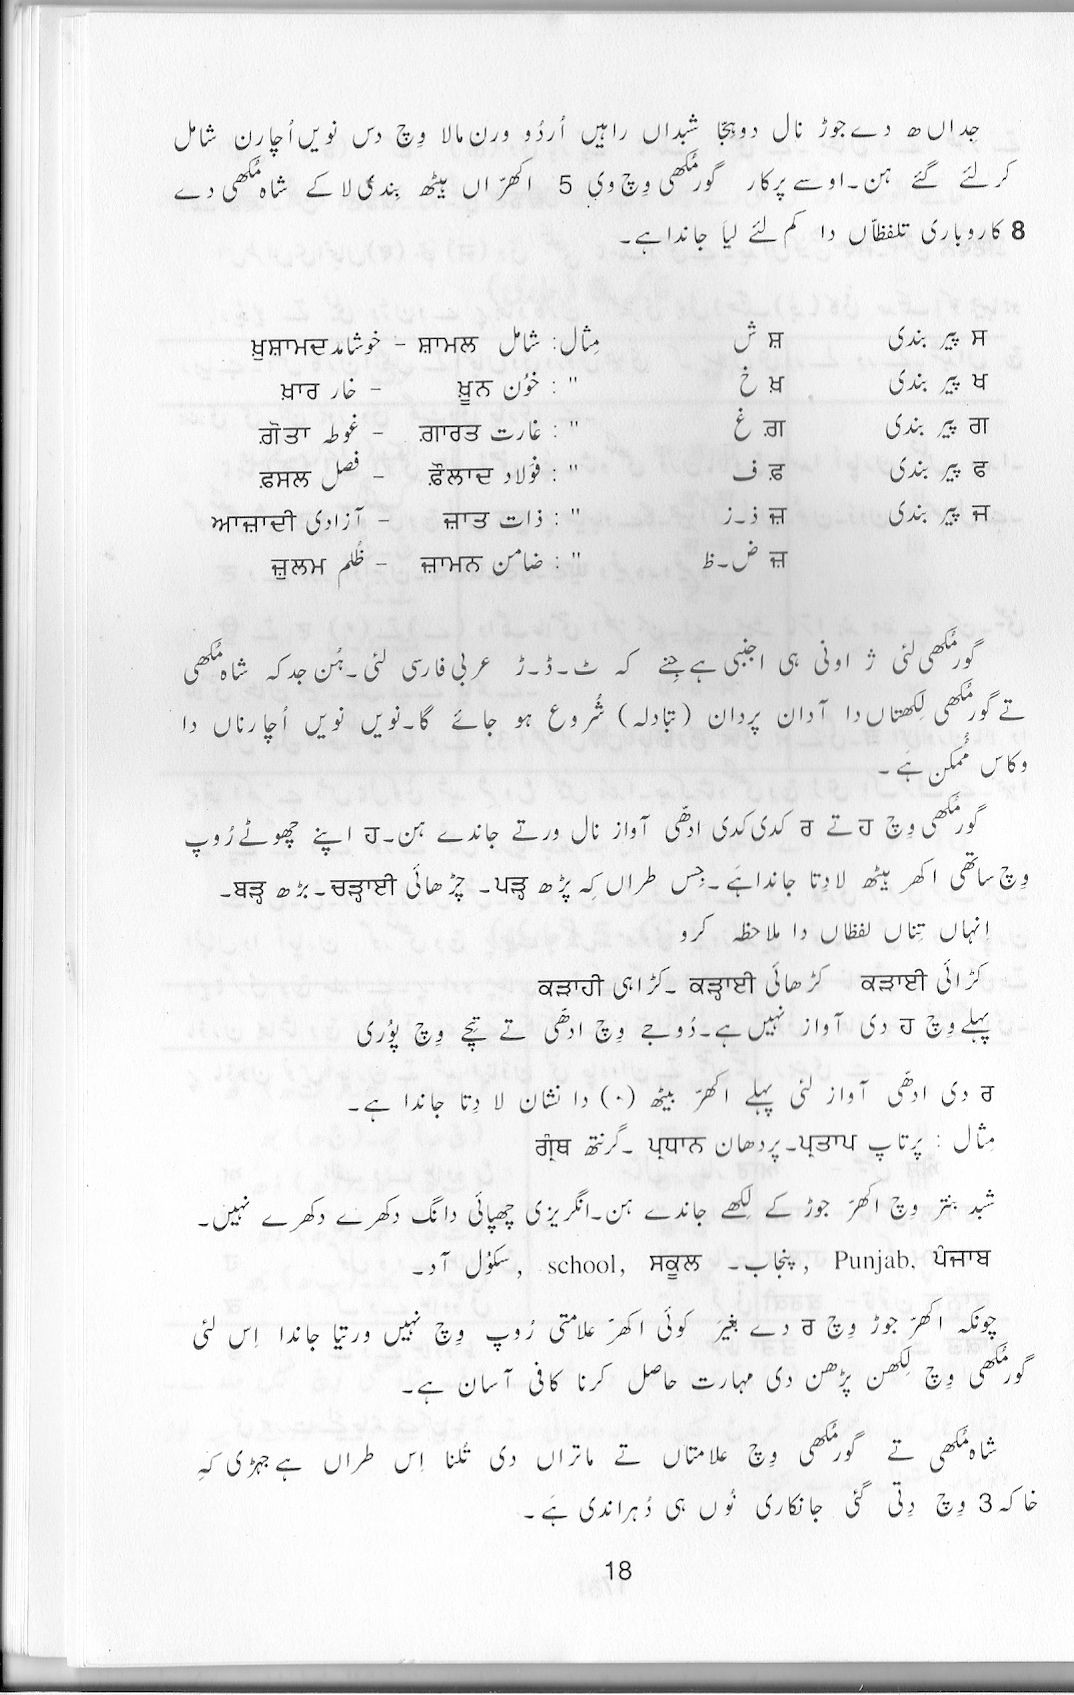 جداں ھ دے جوڑ نال دوہجّا شبداں راہیں اُردُو ورن مالا وِچ دس نویں اُچارن شامل
کر لئے گئے ہن۔ اوسے پرکار گورمُکھی وِچ وی 5 اکھرّاں ہیٹھ بِندی لا کے شاہ مُکھی دے
8 کاروباری تلفظاّں دا کم لئے لیا جاندا ہے۔
ਸ پیر بندی ਸ਼ ش مِثال: شامل ਸ਼ਾਮਲ – خوشامد ਖ਼ੁਸ਼ਾਮਦ
ਖ پیر بندی ਖ਼ خ " : خوُن ਖ਼ੂਨ – خار ਖ਼ਾਰ
ਗ پیر بندی ਗ਼ غ " : غارت ਗ਼ਾਰਤ – غوطہ ਗ਼ੋਤਾ
ਫ پیر بندی ਫ਼ ف " : فوُلاد ਫ਼ੌਲਾਦ – فصل ਫ਼ਸਲ
ਜ پیر بندی ਜ਼ ذ۔ز " : ذات ਜ਼ਾਤ – آزادی ਆਜ਼ਾਦੀ
ਜ਼ ض۔ظ " : ضامن ਜ਼ਾਮਨ – ظُلم ਜ਼ੁਲਮ
گورمُکھی لئی ژ اونی ہی اجنبی ہے جِنے کہ ٹ۔ڈ۔ڑ عربی فارسی لئی۔ ہُن جد کہ شاہ مُکھی
تے گورمُکھی لِکھتاں دا آدان پردان (تبادلہ) شُروع ہو جائے گا۔ نویں نویں اُچارناں دا
وکاس مُمکن ہَے۔
گورمُکھی وِچ ਹ تے ਰ کدی کدی ادھّی آواز نال ورتے جاندے ہن۔ ਹ اپنے چھوٹے رُوپ
وِچ ساتھی اکھر ہیٹھ لا دِتا جاندا ہَے۔ جِس طراں کِہ پڑھ ਪੜ੍ਹ۔ چڑھائی ਚੜ੍ਹਾਈ۔ بڑھ ਬੜ੍ਹ۔
اِنہاں تِناں لفظاں دا ملاحظہ کرو
کڑائی ਕੜਾਈ کڑھائی ਕੜ੍ਹਾਈ۔ کڑاہی ਕੜਾਹੀ
پہلے وِچ ਹ دی آواز نہیں ہے۔ دُوجے وِچ ادھّی تے تیجے وِچ پوُری
ਰ دی ادھّی آواز لئی پہلے اکھرّ ہیٹھ (۰) دا نشان لا دِتا جاندا ہے۔
مِثال : پرتاپ ਪ੍ਰਤਾਪ۔ پردھان ਪ੍ਰਧਾਨ ۔ گرنتھ ਗ੍ਰੰਥ
شبد بنتر وِچ اکھرّ جوڑ کے لِکھے جاندے ہن۔ انگریزی چھپائی وانگ وکھرے وکھرے نہیں۔
ਪੰਜਾਬ Punjab, پنجاب۔ ਸਕੂਲ school, سکوُل آد۔
چونکہ اکھرّ جوڑ وِچ ਰ دے بغیَر کوئی اکھرّ علامتی رُوپ وِچ نہیں ورتیا جاندا اِس لئی
گورمُکھی وِچ لِکھن پڑھن دی مہارت حاصل کرنا کافی آسان ہے۔
شاہ مُکھی تے گورمُکھی وِچ علامتاں تے ماتراں دی تُلنا اِس طراں ہے جہڑی کہِ
خاکہ 3 وِچ دِتی گئی جانکاری نُوں ہی دُہراندی ہَے۔
18